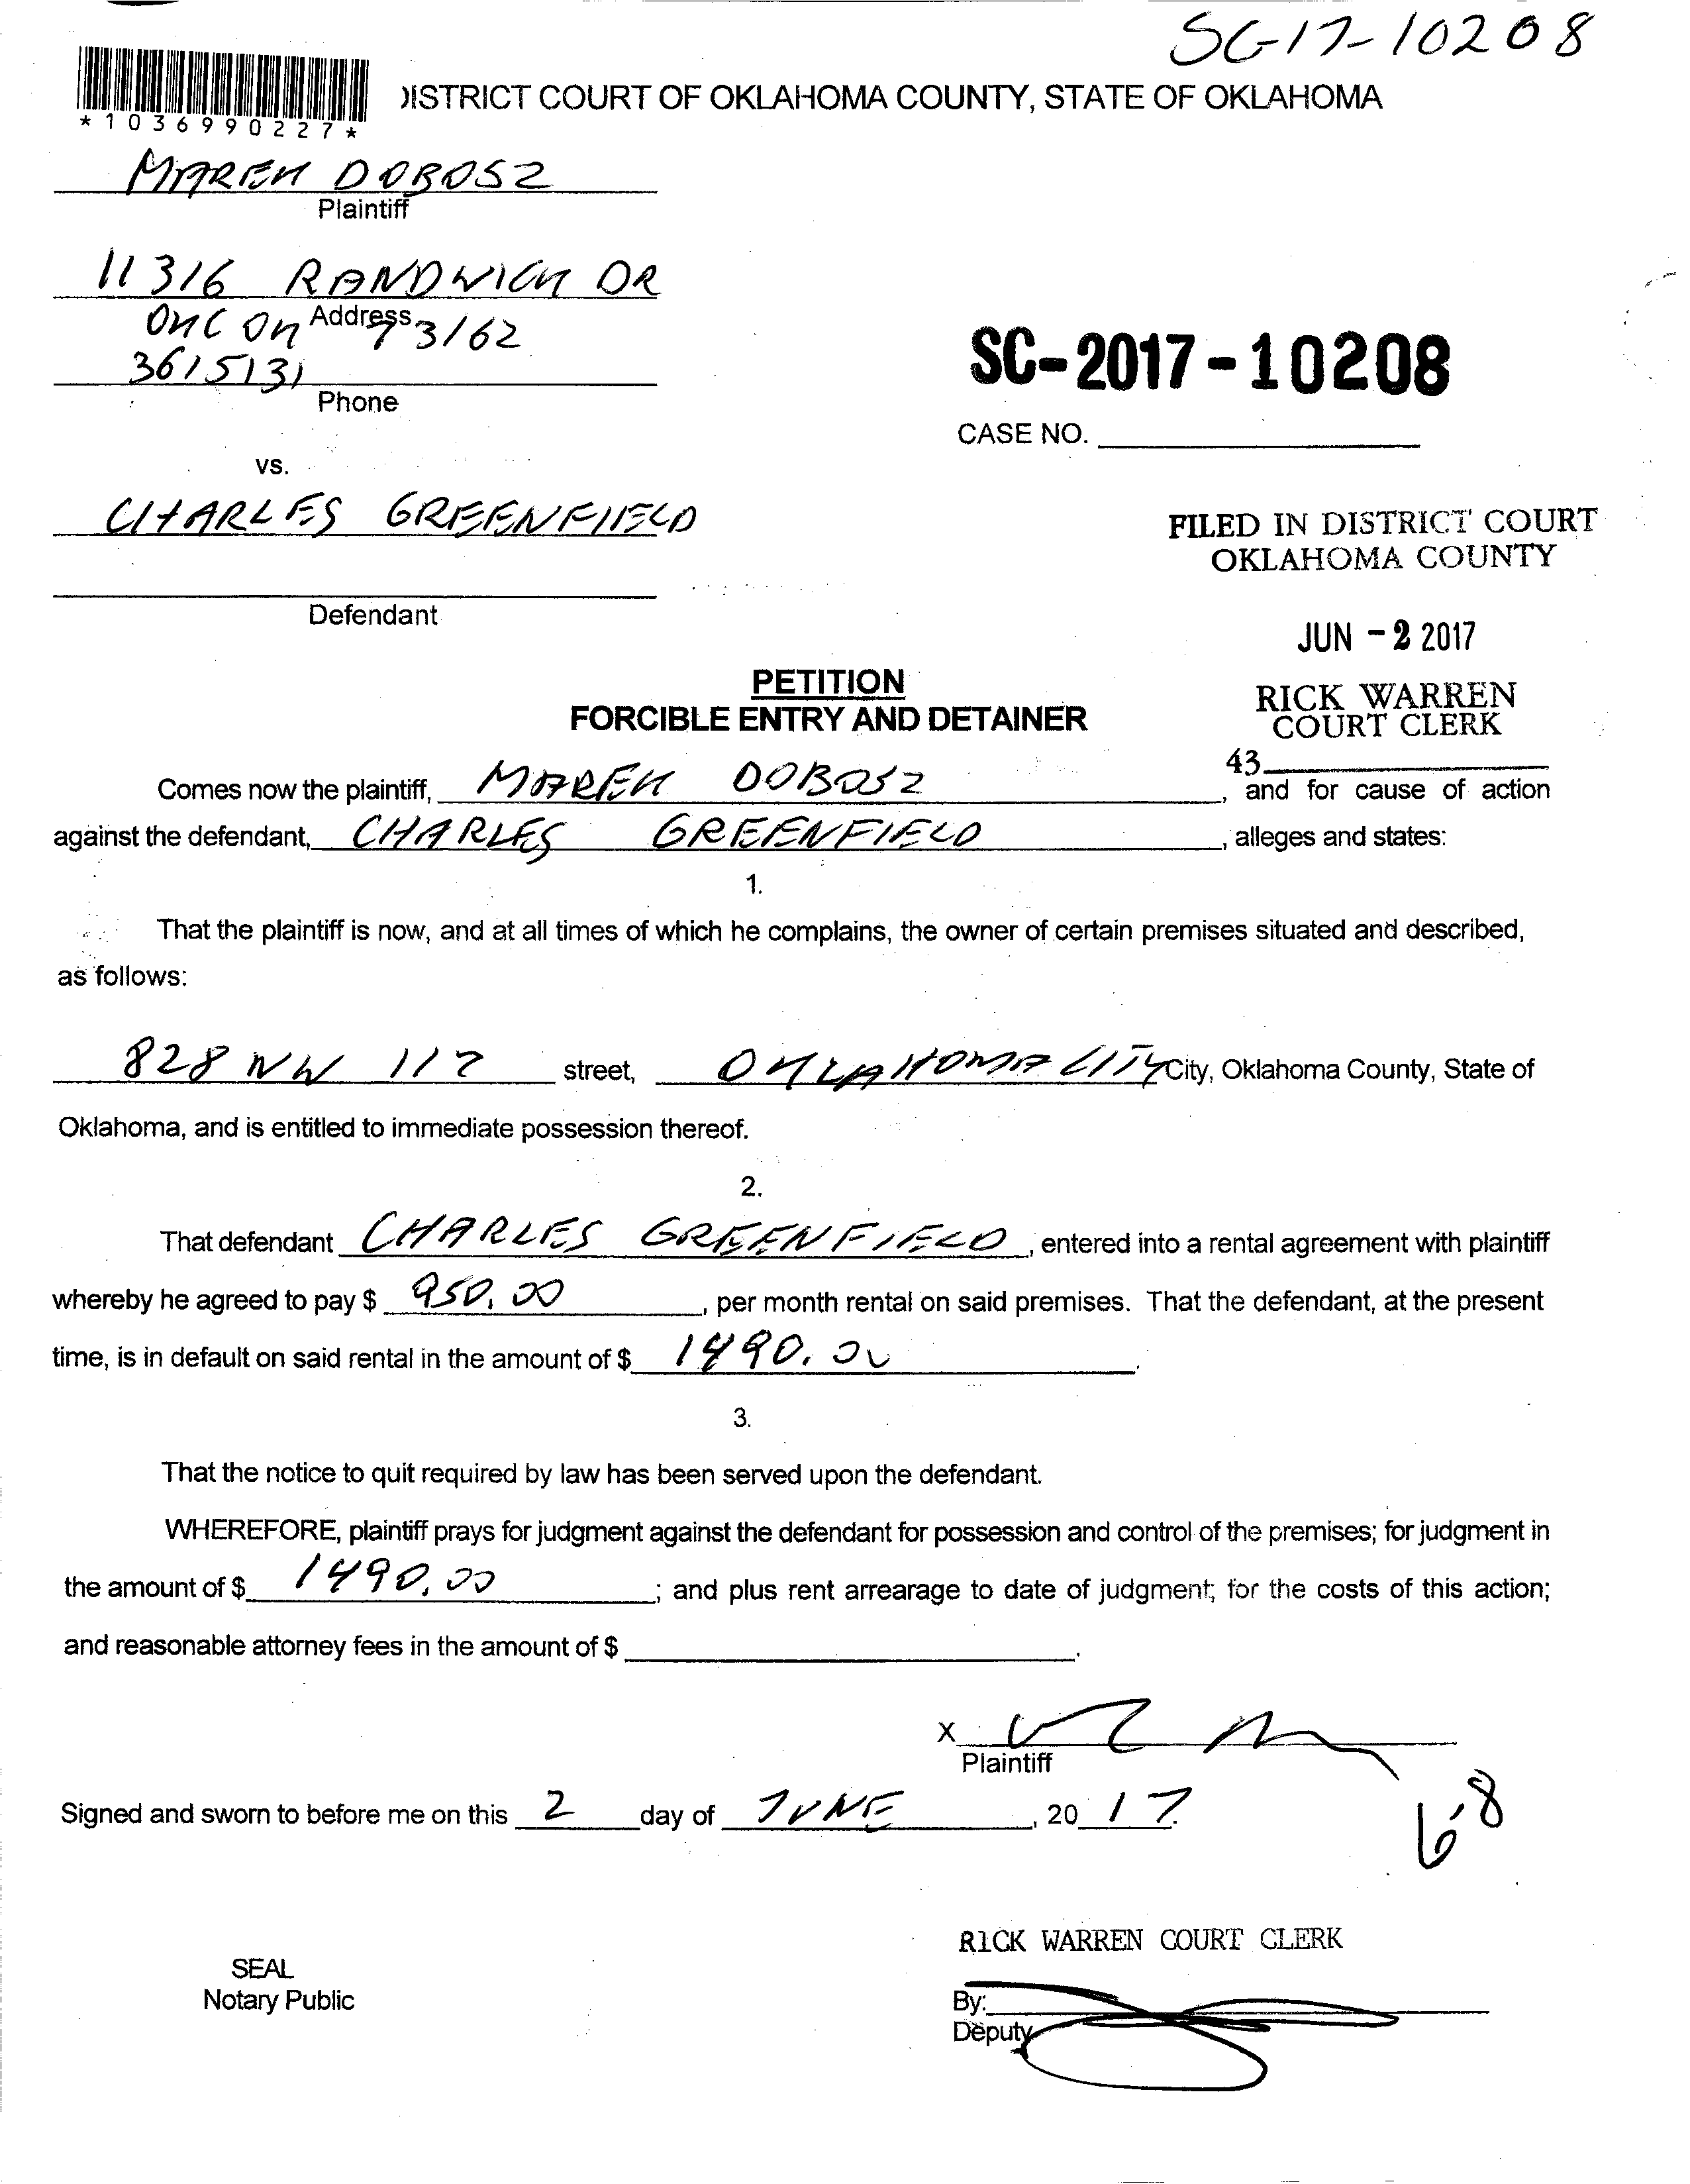 SC-17-10208
*1036990227*
DISTRICT COURT OF OKLAHOMA COUNTY, STATE OF OKLAHOMA
MAREK DOBOSZ
Plaintiff
11316 RANDWICK DR
Address
OKC OK 73162
3615131
Phone
SC-2017-10208
CASE NO.
vs.
CHARLES GREENFIELD
Defendant
FILED IN DISTRICT COURT
OKLAHOMA COUNTY
JUN - 2 2017
RICK WARREN
COURT CLERK
43
PETITION
FORCIBLE ENTRY AND DETAINER
Comes now the plaintiff, MAREK DOBOSZ, and for cause of action
against the defendant, CHARLES GREENFIELD, alleges and states:
1.
That the plaintiff is now, and at all times of which he complains, the owner of certain premises situated and described,
as follows:
828 NW 112 street, OKLAHOMA CITY City, Oklahoma County, State of
Oklahoma, and is entitled to immediate possession thereof.
2.
That defendant CHARLES GREENFIELD, entered into a rental agreement with plaintiff
whereby he agreed to pay $ 950.00, per month rental on said premises. That the defendant, at the present
time, is in default on said rental in the amount of $ 1490.00.
3.
That the notice to quit required by law has been served upon the defendant.
WHEREFORE, plaintiff prays for judgment against the defendant for possession and control of the premises; for judgment in
the amount of $ 1490.00; and plus rent arrearage to date of judgment; for the costs of this action;
and reasonable attorney fees in the amount of $ .
X
Plaintiff
Signed and sworn to before me on this 2 day of JUNE, 20 17.
6-8
RICK WARREN COURT CLERK
SEAL
Notary Public
By:
Deputy